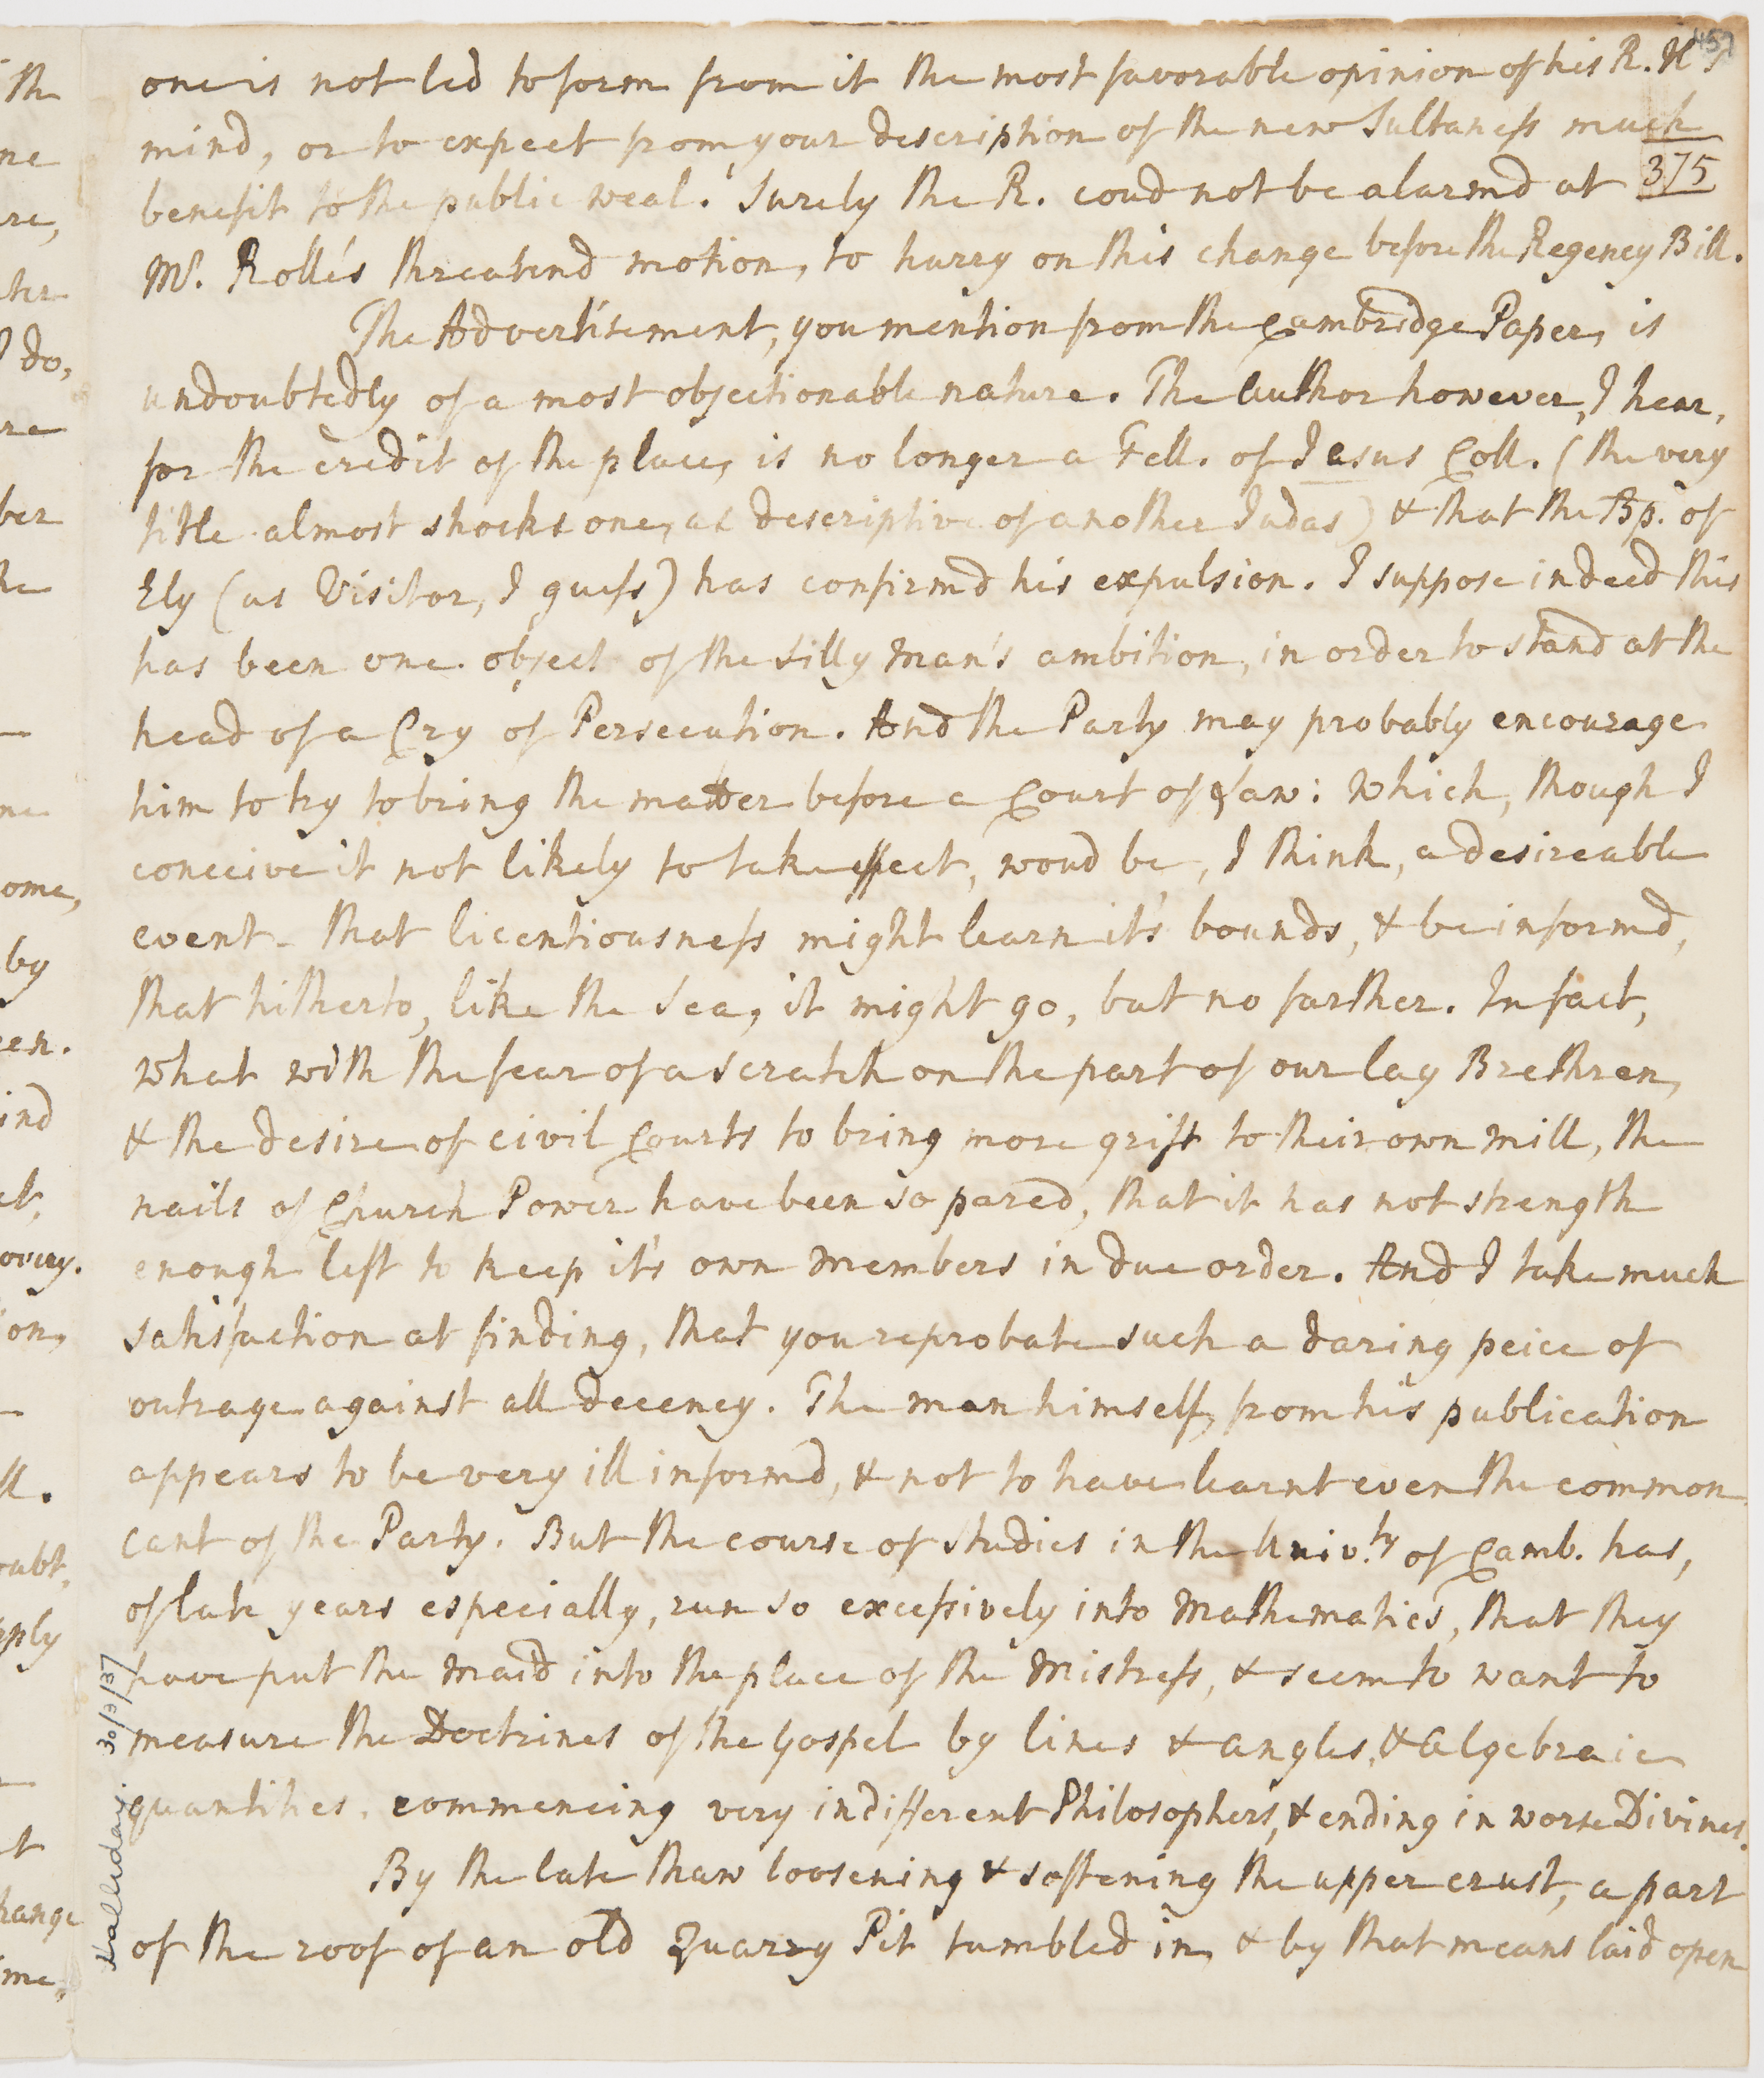 457
one is not led to form from it the most favorable opinion of his R. H's
mind, or to expect from your description of the new Sultaness much
375
benefit to the public weal. Surely the R. coud not be alarmd at
Mr. Rolle's threatend motion, to hurry on this change before the Regency Bill.
The Advertisement, you mention from the Cambridge Paper, is
undoubtedly of a most objectionable nature. The Author however, I hear,
for the credit of the place, is no longer a Fell. of Jesus Coll. (the very
title almost shocks one, as descriptive of another Judas) & that the Bp. of
Ely (as Visitor, I guess) has confirmd his expulsion. I suppose indeed this
has been one object of the silly man's ambition, in order to stand at the
head of a Cry of Persecution. And the Party may probably encourage
him to try to bring the matter before a Court of Law: which, though I
conceive it not likely to take effect, woud be, I think, a desireable
event - that licentiousness might learn it's bounds, & be informd,
that hitherto, like the Sea, it might go, but no farther. In fact,
what with the fear of a scratch on the part of our lay Brethren,
& the desire of civil Courts to bring more grist to their own mill, the
nails of Church Power have been so pared, that it has not strength
enough left to keep it's own members in due order. And I take much
satisfaction at finding, that you reprobate such a daring peice of
outrage against all decency. The man himself, from his publication
appears to be very ill informd, & not to have learnt even the common
cant of the Party. But the course of studies in the Univ.ty of Camb. has,
of late years especially, run so excessively into Mathematics, that they
have put the Maid into the place of the Mistress, & seem to want to
measure the Doctrines of the Gospel by lines & angles, & algebraic
quantities. commencing very indifferent Philosophers, & ending in worse Divines.
By the late thaw loosening & softening the upper crust, a part
of the roof of an old Quarry Pit tumbled in, & by that means laid open
Halliday. 30/3/37